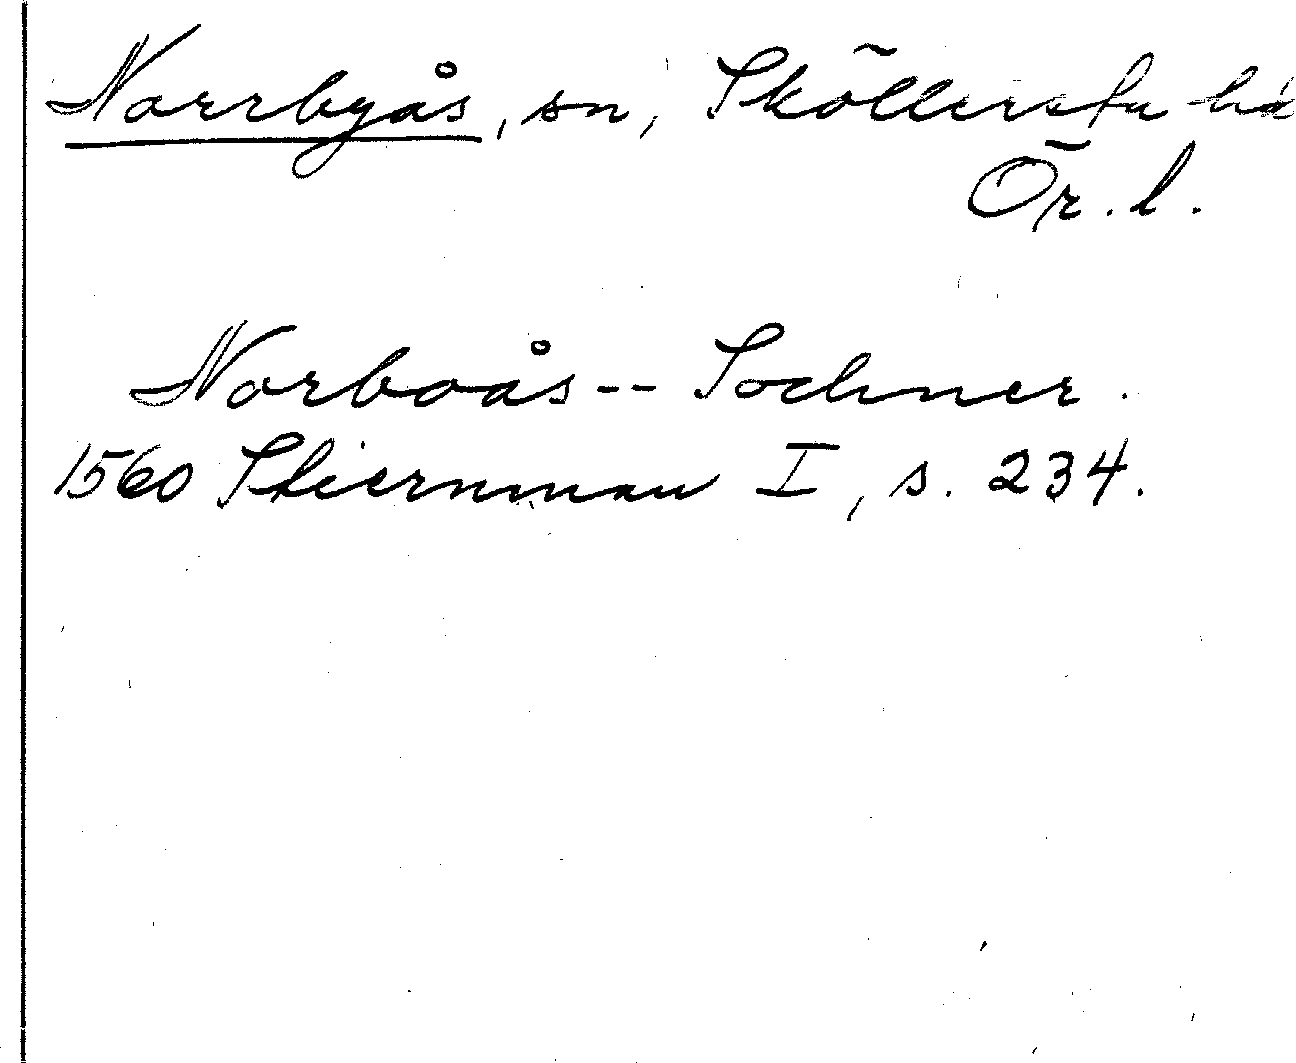 Norrbyås, sn, Sköllersta hä
Ör. l.
Norboås -- Sochner.
1560 Stiernman I, s. 234.